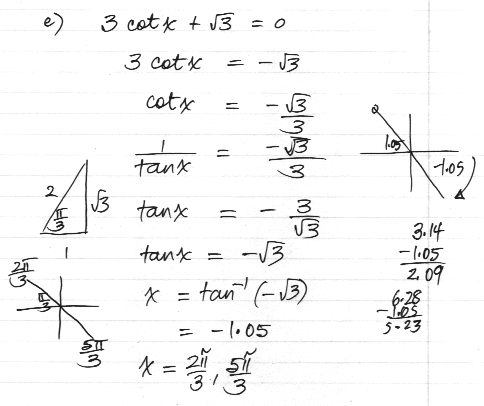 e) 3 cot x + √3 = 0
3 cot x = -√3
cot x = -√3/3
1/tan x = -√3/3
tan x = - 3/√3
tan x = -√3
x = tan⁻¹(-√3)
= -1.05
x = 2π/3, 5π/3
2
√3
π/3
1
2π/3
π/3
5π/3
1.05
-1.05
3.14
-1.05
2.09
6.28
-1.05
5.23